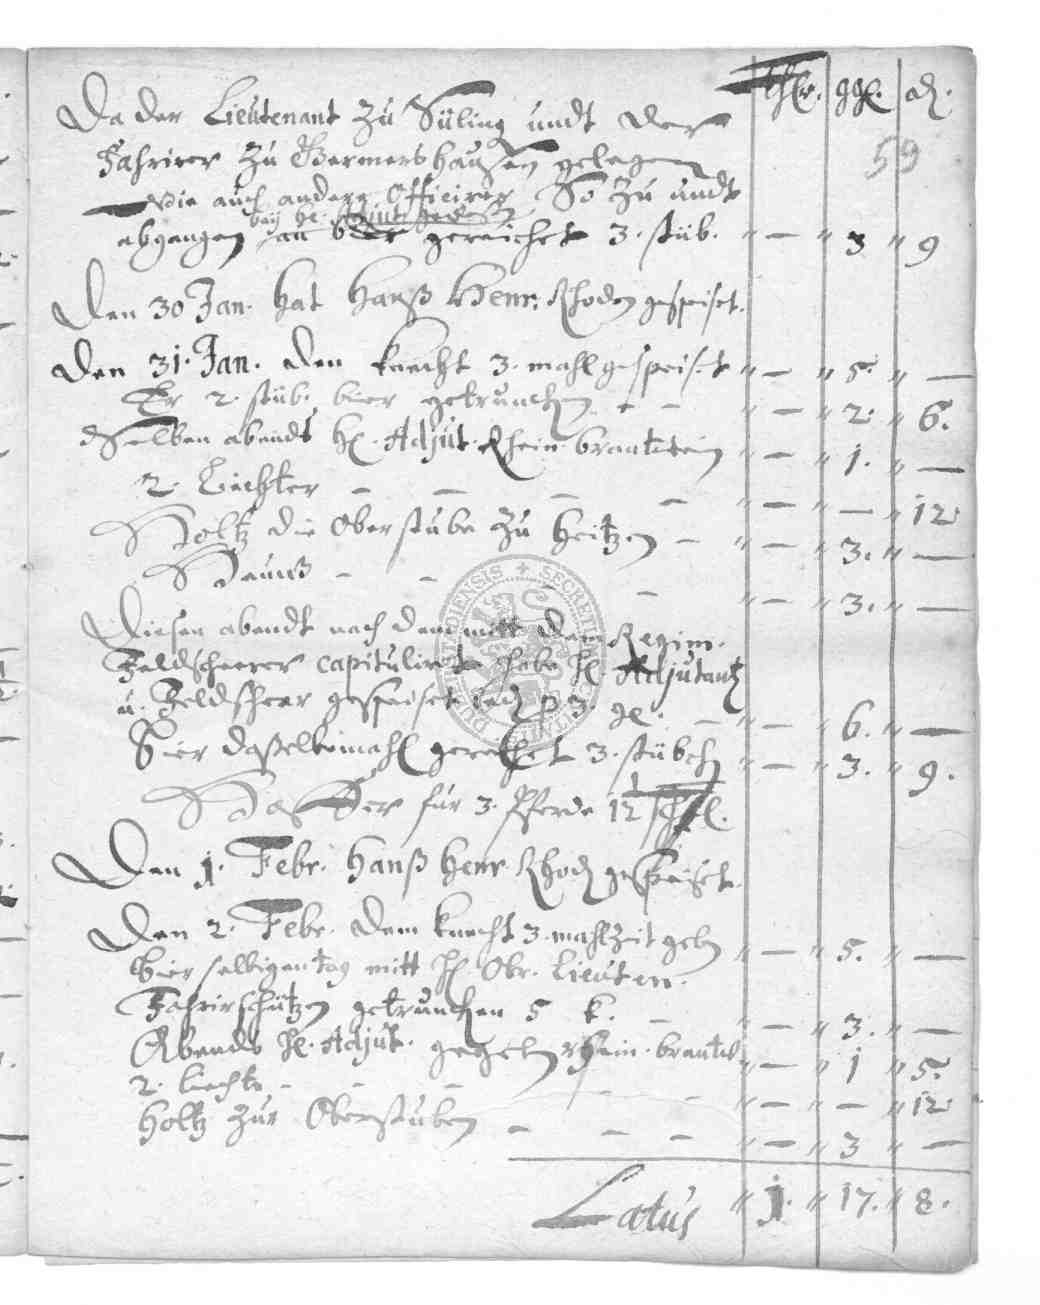 thlr. ggl. ₰.
59
Da der Lieutenant zu Süling undt der
Fahrirer zu Germershausen gelegen
wie auch andere Officirer So zu undt
abgangen an bier gereichet 3. stüb. " — " 3 " 9
Den 30 Jan. hat Hanß Henr. Rhoden gespeiset.
Den 31. Jan. den knecht 3. mahl gespeiset " — " 5. " —
Er 2. stüb. bier getruncken - - " — " 2. " 6.
Selben abendts H. Adjut. Rhein. brantwein " — " 1. " —
2. Liechter - - - - " — " — " 12
Holtz die Oberstube zu heitzen - " — " 3. " —
- - - " — " 3. " —
Diesen abendt nach dem mitt dem Regim.
Feldscheerer capituliret habe H. Adjutant
u. Feldscher gespeiset jed. p 3. gl. - " — " 6. " —
Bier daßelbe mahl gereichet 3. stübch " — " 3. " 9.
Haffer für 3. Pferde 12
Den 1. Febr. Hanß Henr. Rhod gespeiset.
Den 2. Febr. dem knecht 3. mahlzeit geben " — " 5. " —
Bier selbigen tag mitt H. Obr. Lieuten.
Fahrirschützen getruncken 5 k. - " — " 3. " —
Abends H. Adjut. gegeben Rhein. brantw " — " 1 " 5.
2. liecht - - - - - " — " — " 12
Holtz zur Oberstuben - - - " — " 3 " —
Latus " 1. " 17. " 8.